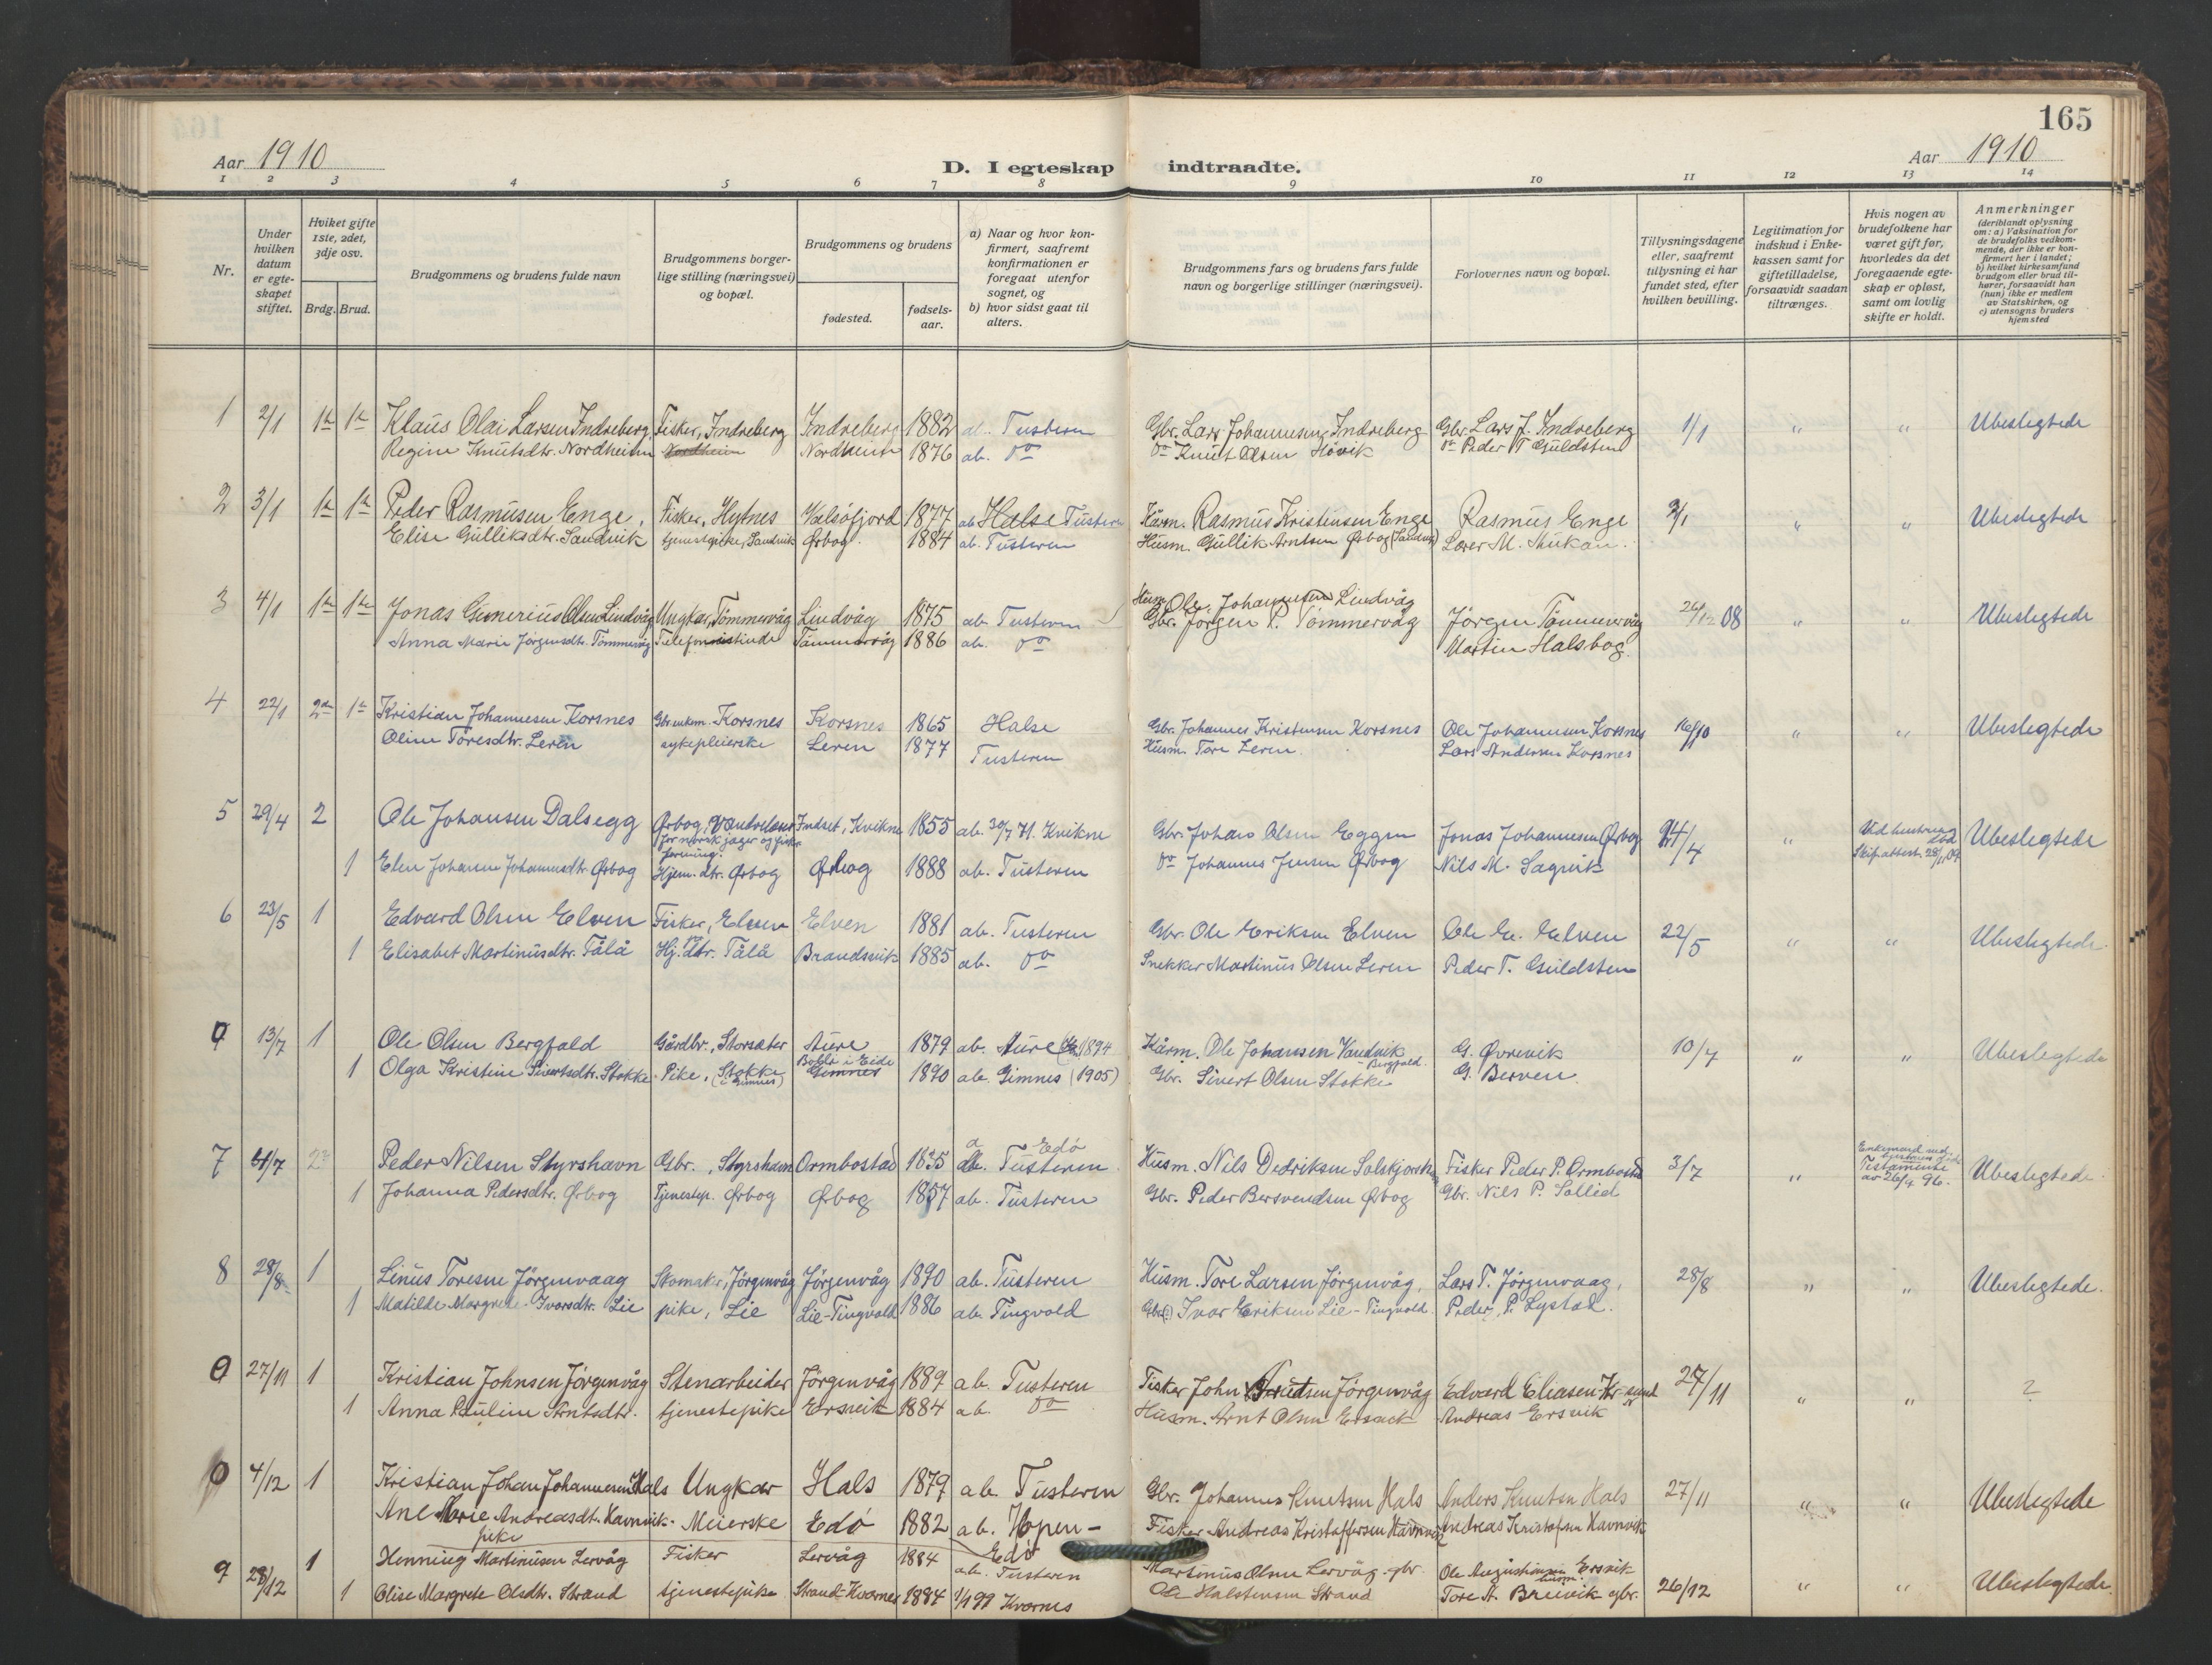 165
Aar 1910
D. I egteskap indtraadte.
Aar 1910
1 2 3 4 5 6 7 8 9 10 11 12 13 14
Nr.
Under hvilken datum er egteskapet stiftet.
Hviket gifte 1ste, 2det, 3dje osv.
Brdg. Brud.
Brudgommens og brudens fulde navn
Brudgommens borgerlige stilling (næringsvei) og bopæl.
Brudgommens og brudens
fødested.
fødselsaar.
a) Naar og hvor konfirmert, saafremt konfirmationen er foregaat utenfor sognet, og
b) hvor sidst gaat til alters.
Brudgommens fars og brudens fars fulde navn og borgerlige stillinger (næringsvei).
Forlovernes navn og bopæl.
Tillysningsdagene eller, saafremt tillysning ei har fundet sted, efter hvilken bevilling.
Legitimation for indskud i Enkekassen samt for giftetilladelse, forsaavidt saadan tiltrænges.
Hvis nogen av brudefolkene har været gift før, hvorledes da det foregaaende egteskap er opløst, samt om lovlig skifte er holdt.
Anmerkninger (deriblandt oplysning om: a) Vaksination for de brudefolks vedkommende, der ikke er konfirmert her i landet; b) hvilket kirkesamfund brudgom eller brud tilhører, forsaavidt han (hun) ikke er medlem av Statskirken, og c) utensogns bruders hjemsted
1 2/1 1ste 1ste Klaus Olai Larsen Indreberg Fisker, Indreberg Indreberg 1882 ab. Tusteren Gbr. Lars Johannesen Indreberg Gbr. Lars J. Indreberg 1/1 " " Ubeslegtede
Regine Knutsdtr. Nordheim Nordheim Nordheim 1876 ab. do do Knut Olsen Høvik do Peder T. Guldsten
2 3/1 1ste 1ste Peder Rasmusen Enge, Fisker, Hytnes Valsøfjord 1877 ab Halse Tusteren Kårm. Rasmus Kristensen Enge Rasmus Enge 2/1 " " Ubeslegtede
Elise Gulliksdtr. Sandvik tjenestepike, Sandvik Ørbog. 1884 ab. Tusteren Husm. Gullik Arntsen Ørbog (Sandvik) Lærer M. Stukan.
3 4/1 1ste 1ste Jonas Gunerius Olsen Lindvåg Ungkar, Tömmervåg Lindvåg 1875 ab. Tusteren Husm. Ole Johannesen Lindvåg Jörgen Tömmervåg 26/12 08 " " Ubeslegtede
Anna Marie Jörgensdtr. Tömmervåg Telefonistinde Tömmervåg 1886 ab. do Gbr. Jörgen P. Tömmervåg Martin Halsbog.
4 22/1 2den 1ste Kristian Johannesen Korsnes Gbr. enkem. Korsnes Korsnes 1865 Halse Gbr. Johannes Kristensen Korsnes Ole Johannesen Korsnes 16/10 " " Ubeslegtede
Oline Toresdtr. Leren sykepleierske Leren 1877 Tusteren Husm. Tore Leren. Lars Andersen Korsnes
5 29/4 2 Ole Johansen Dalsegg Ørbog, Vandrelærer Indset, Kvikne 1855 ab. 30/7 71. Kvikne Gbr. Johans Olsen Eggen Jonas Johannesen Ørbog 24/4 " Ved hustruens död Ubeslegtede
for norsk jæger og fiskerforening. Skifteattest 28/11 09
1 Elen Johanne Johannesdtr. Ørbog Hjem. dtr. Ørbog Ørbog 1888 ab. Tusteren do Johannes Jensen Ørbog Nils M. Sagvik
6 23/5 1 Edvard Olsen Elven Fisker, Elven Elven 1881 ab. Tusteren Gbr. Ole Eriksen Elven Ole E. Elven 22/5 " " Ubeslegtede.
1 Elisabet Martinusdtr. Tålå Hj. dtr. Tålå Brandsvik 1885 ab. do Snekker Martinus Olsen Leren Peder T. Guldsten
0 13/7 1 Ole Olsen Bergfald Gårdbr., Storsæter Aure 1879 ab. Aure 1894 Kårm. Ole Johansen Vandvik Bergfald G. Øvrevik 10/7 " " Ubeslegtede
1 Olga Kristine Sivertsdtr. Stokke Pike, Stokke (i Gimnes) Bolle i Eide Gimnes 1890 ab. Gimnes (1905) Gbr. Sivert Olsen Stokke G. Berven.
7 4/7 2 Peder Nilsen Styrshavn Gbr., Styrshavn Ormbostad 1835 ab. Edø Tusteren. Husm. Nils Dedriksen Solskjor Fisker Peder P. Ormbostad 3/7 " Enkemand Testamente av 26/4 96. Ubeslegtede.
1 Johanna Pedersdtr. Ørbog Tjenestep. Ørbog Ørbog 1857 ab. Tusteren Gbr. Peder Bersvendsen Ørbog Gbr. Nils P. Sollied
8 28/8 1 Linus Toresen Jörgenvaag Skomaker, Jörgenvåg Jörgenvåg 1890 ab. Tusteren Husm. Tore Larsen Jörgenvåg, Lars T. Jörgenvaag, 28/8 " " Ubeslegtede.
1 Matilde Margrete Ivarsdtr. Lie pike, Lie Lie-Tingvold 1886 ab. Tingvold Gbr(?) Ivar Eriksen Lie - Tingvold. Peder P. Lystad.
0 27/11 1 Kristian Johnsen Jörgenvåg Stenarbeider Jörgenvåg 1889 ab. Tusteren Fisker John Knutsen Jörgenvåg Edvard Eliasen Kr-sund 27/11 " " ?
1 Anna Pauline Arntsdtr. tjenestepike Ersvik 1884 ab. do Husm. Arnt Olsen Ersvik Andreas Ersvik
0 4/12 1 Kristian Johan Johannesen Hals Ungkar Hals 1879 ab. Tusteren Gbr. Johannes Knutsen Hals Anders Knutsen Hals 27/11 " " Ubeslegtede
Ane Marie Andreasdt. Havnvik. Meierske Edö 1882 ab. Hopen - Edö Fisker Andreas Kristoffersen Havnvik Andreas Kristofsen Havnvik
pike
9 28/12 1 Henning Martinusen Lervåg Fisker Lervåg 1884 ab. Tusteren Martinus Olsen Lervåg - gbr. Ole Augustinsen Ersvik husm. 26/12 " " Ubeslegtede.
1 Olise Margrete Olsdtr. Strand tjenestepike Strand-Kvernes 1884 1/1 99 Kvernes Ole Halstensen Strand Tore A. Breivik gbr.